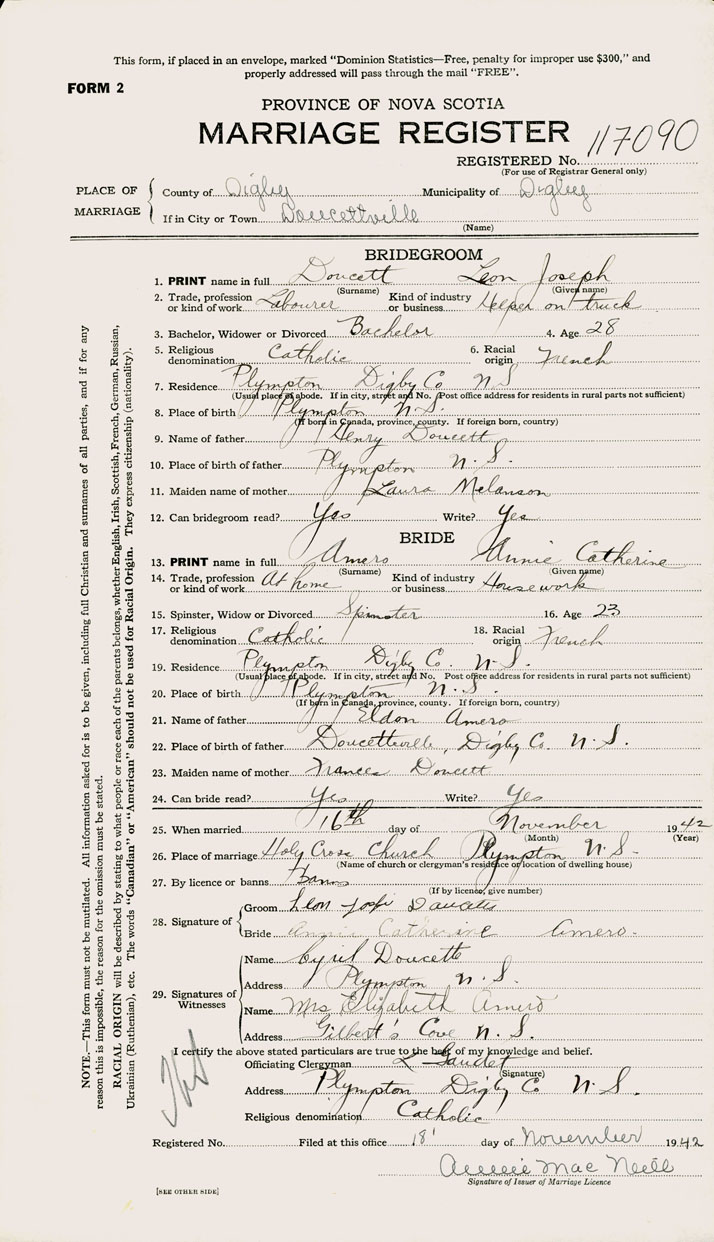 This form, if placed in an envelope, marked "Dominion Statistics—Free, penalty for improper use $300," and
properly addressed will pass through the mail "FREE".
FORM 2
PROVINCE OF NOVA SCOTIA
MARRIAGE REGISTER 117090
REGISTERED No.
(For use of Registrar General only)
PLACE OF MARRIAGE
County of Digby Municipality of Digby
If in City or Town Doucettville
(Name)
BRIDEGROOM
1. PRINT name in full Doucett Leon Joseph
(Surname) (Given name)
2. Trade, profession or kind of work Labourer Kind of industry or business Helper on truck
3. Bachelor, Widower or Divorced Bachelor 4. Age 28
5. Religious denomination Catholic 6. Racial origin French
7. Residence Plympton Digby Co N.S
(Usual place of abode. If in city, street and No. Post office address for residents in rural parts not sufficient)
8. Place of birth Plympton N.S.
(If born in Canada, province, county. If foreign born, country)
9. Name of father Henry Doucett
10. Place of birth of father Plympton N.S.
11. Maiden name of mother Laura Melanson
12. Can bridegroom read? Yes Write? Yes
BRIDE
13. PRINT name in full Amero Annie Catherine
(Surname) (Given name)
14. Trade, profession or kind of work At home Kind of industry or business Housework
15. Spinster, Widow or Divorced Spinster 16. Age 23
17. Religious denomination Catholic 18. Racial origin French
19. Residence Plympton Digby Co. N.S.
(Usual place of abode. If in city, street and No. Post office address for residents in rural parts not sufficient)
20. Place of birth Plympton N.S.
(If born in Canada, province, county. If foreign born, country)
21. Name of father Eldon Amero
22. Place of birth of father Doucetteville, Digby Co. N.S.
23. Maiden name of mother Frances Doucett
24. Can bride read? Yes Write? Yes
25. When married 16th day of November 1942
(Month) (Year)
26. Place of marriage Holy Cross Church Plympton N.S.
(Name of church or clergyman's residence or location of dwelling house)
27. By licence or banns Banns
(If by licence, give number)
28. Signature of
Groom Leon
Bride Annie Catherine Amero.
29. Signatures of Witnesses
Name Cyril Doucette
Address Plympton N.S.
Name Mrs Elizabeth Amero
Address Gilbert's Cove N.S.
I certify the above stated particulars are true to the best of my knowledge and belief.
Officiating Clergyman L Gaudet
(Signature)
Address Plympton Digby Co N.S.
Religious denomination Catholic
Registered No. Filed at this office 18 day of November 1942
Annie Mac Neill
Signature of Issuer of Marriage Licence
[SEE OTHER SIDE]
NOTE.—This form must not be mutilated. All information asked for is to be given, including full Christian and surnames of all parties, and if for any
reason this is impossible, the reason for the omission must be stated.
RACIAL ORIGIN will be described by stating to what people or race each of the parents belongs, whether English, Irish, Scottish, French, German, Russian,
Ukrainian (Ruthenian), etc. The words "Canadian" or "American" should not be used for Racial Origin. They express citizenship (nationality).